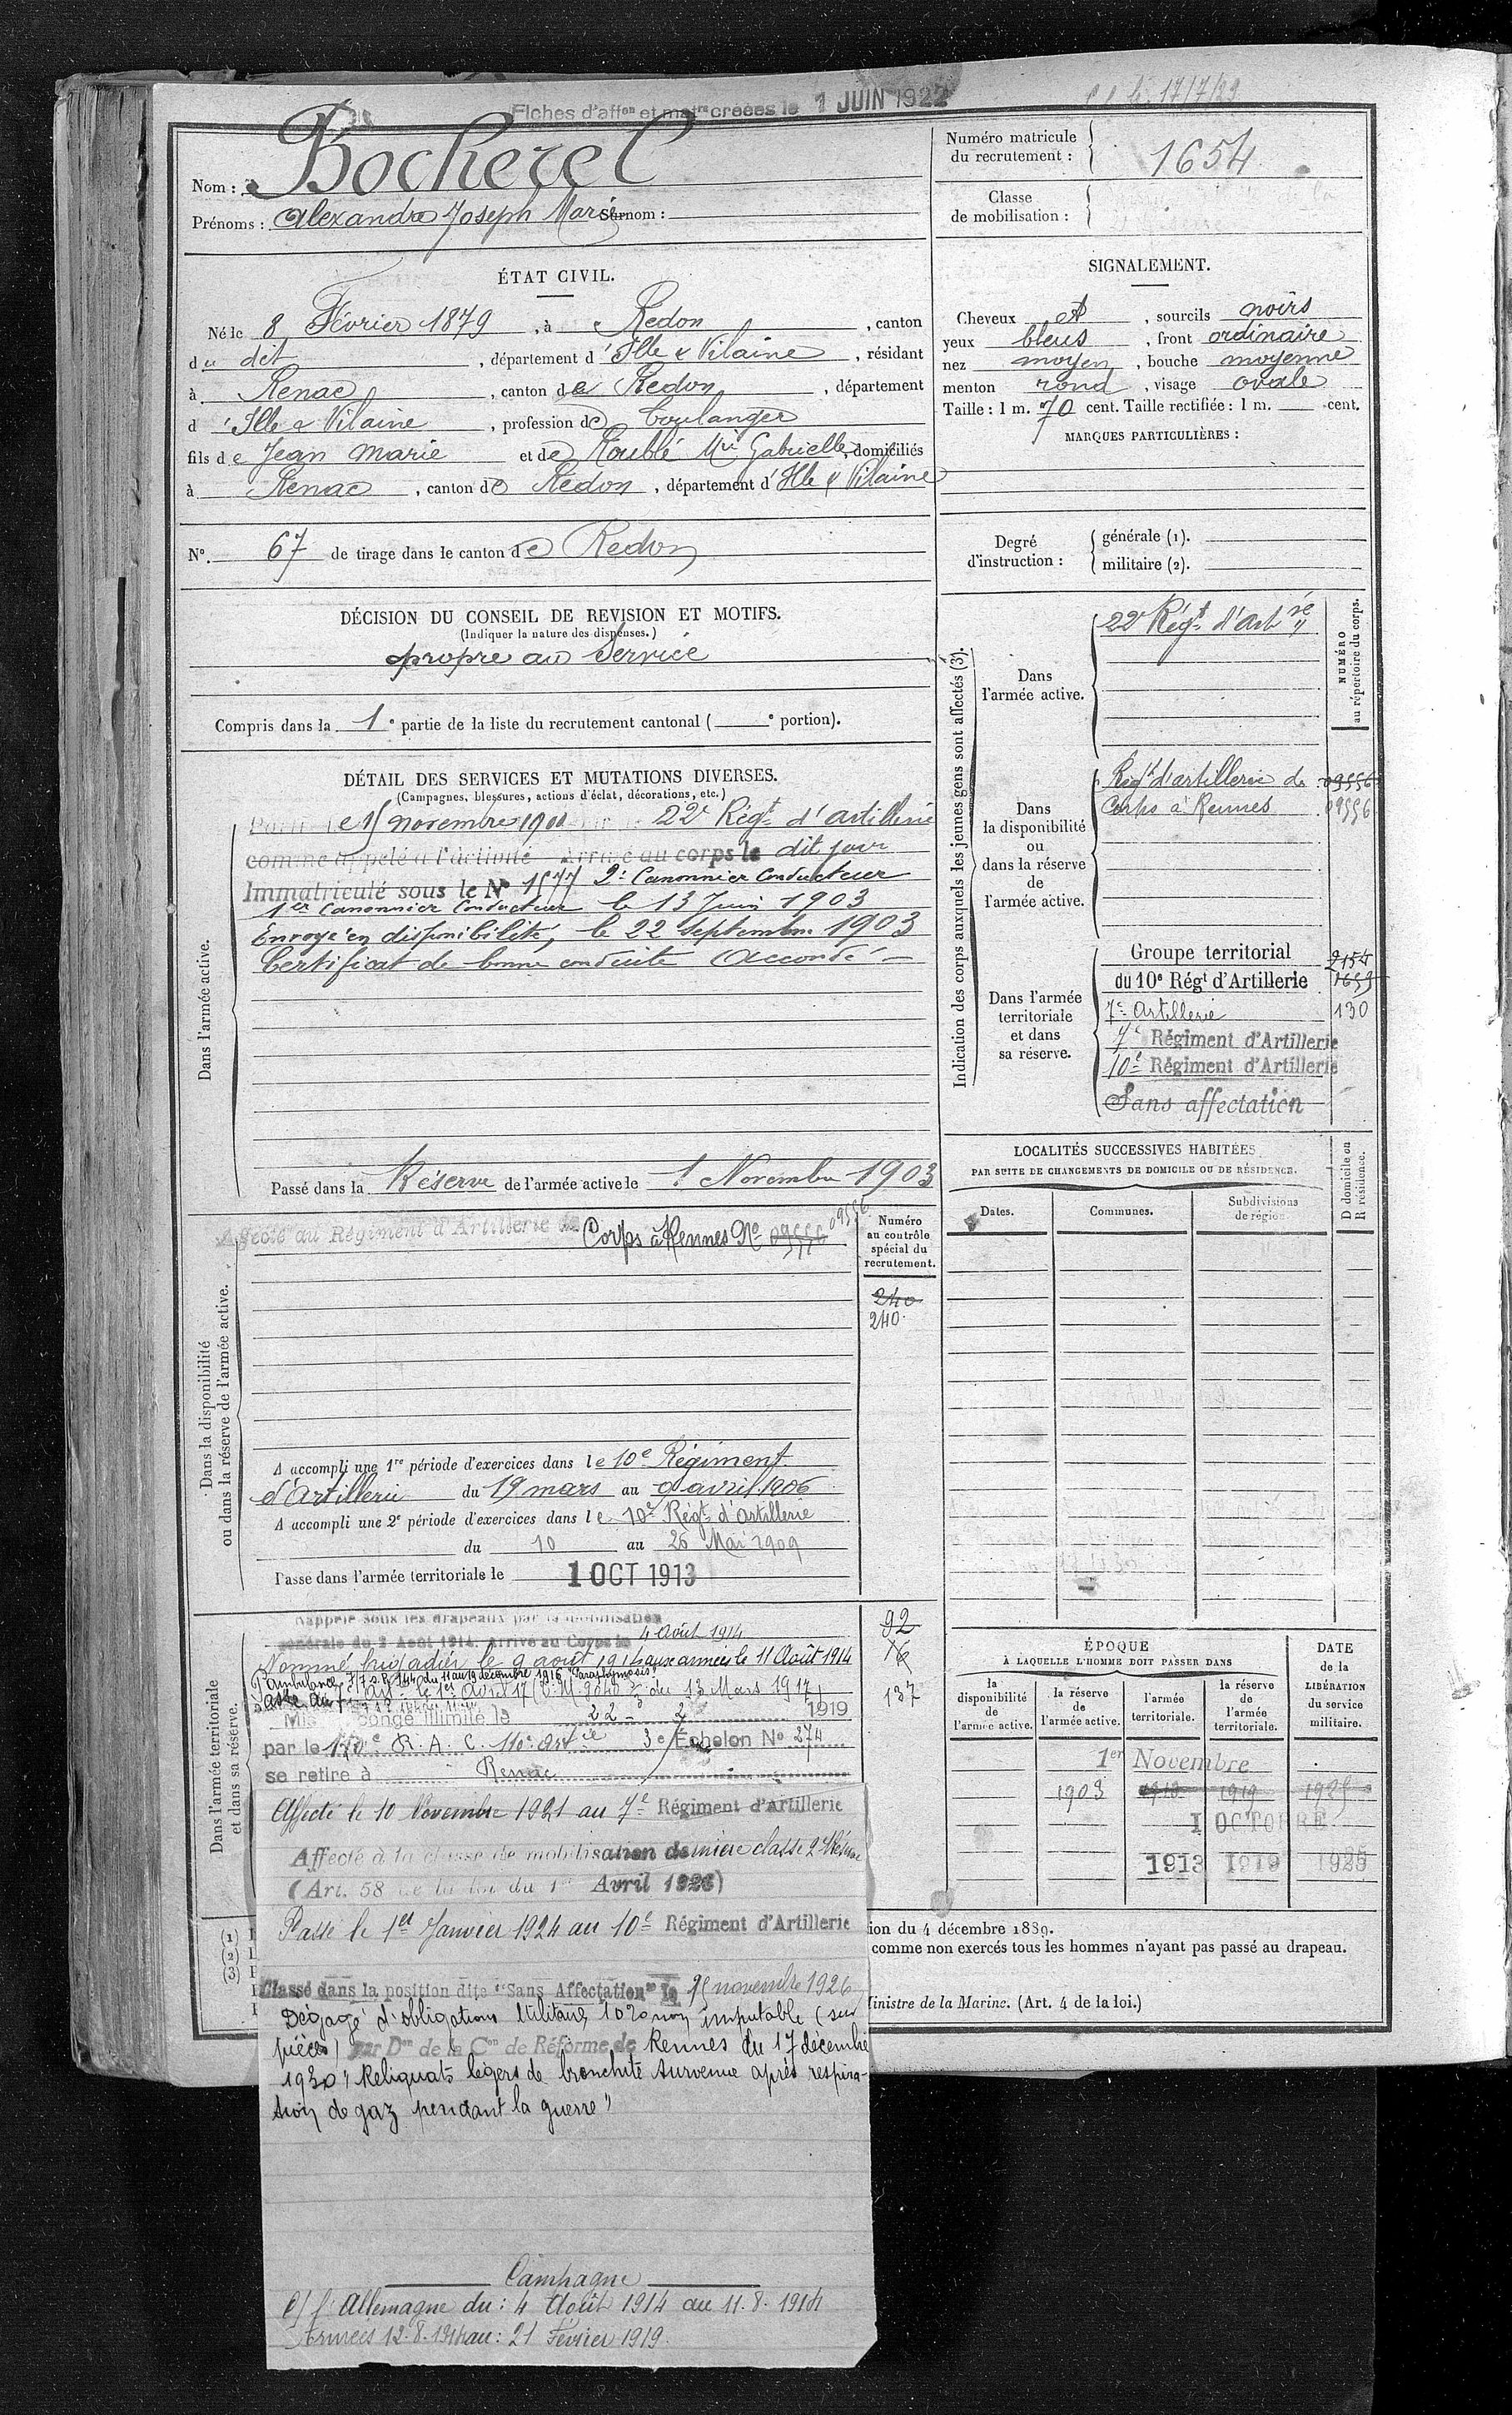 Fiches d'affon et matre créées le 1 JUIN 1922
17/7/29
Nom : Bocherel
Prénoms : Alexandre Joseph Marie Surnom :
Numéro matricule du recrutement : 1654
Classe de mobilisation :
ÉTAT CIVIL.
Né le 8 Février 1879, à Redon, canton
du det, département d'Ille & Vilaine, résidant
à Renac, canton de Redon, département
d'Ille & Vilaine, profession de boulanger
fils de Jean Marie et de Roublé Mie Gabrielle, domiciliés
à Renac, canton de Redon, département d'Ille & Vilaine
N° 67 de tirage dans le canton de Redon
SIGNALEMENT.
Cheveux et, sourcils noirs
yeux bleus, front ordinaire
nez moyen, bouche moyenne
menton rond, visage ovale
Taille : 1 m. 70 cent. Taille rectifiée : 1 m. cent.
MARQUES PARTICULIÈRES :
Degré d'instruction : générale (1).
militaire (2).
DÉCISION DU CONSEIL DE REVISION ET MOTIFS.
(Indiquer la nature des dispenses.)
propre au service
Compris dans la 1e partie de la liste du recrutement cantonal ( e portion).
DÉTAIL DES SERVICES ET MUTATIONS DIVERSES.
(Campagnes, blessures, actions d'éclat, décorations, etc.)
Dans l'armée active.
novembre 1900 22e Régt d'artillerie
comme appelé à l'activité Arrivé au corps le dit jour
Immatriculé sous le N° 1577 2e Canonnier Conducteur
1er Canonnier Conducteur le 13 Juin 1903
Envoyé en disponibilité, le 22 septembre 1903
Certificat de bonne conduite Accordé
Passé dans la Réserve de l'armée active le 1 Novembre 1903
Dans la disponibilité ou dans la réserve de l'armée active.
Affecté au Régiment d'Artillerie de Corps à Rennes No 09556 09556
Numéro au contrôle spécial du recrutement.
240
240
A accompli une 1re période d'exercices dans le 10e Régiment
d'Artillerie du 19 mars au avril 1906
A accompli une 2e période d'exercices dans le 10e Régt d'artillerie
du 10 au 26 Mai 1909
Passé dans l'armée territoriale le 1 OCT 1913
Dans l'armée territoriale et dans sa réserve.
Rappelé sous les drapeaux par la mobilisation
générale du 2 Août 1914. Arrivé au Corps le 4 Août 1914
Nommé brigadier le 9 août 1914 aux armées le 11 Août 1914
Ambulance du 11 au 19 décembre 1916 "Paraphymosis"
le 1er Avril 17 du 13 Mars 1917
Mis en Congé illimité le 22 - 2 1919
par le R. A. C. 110e Artie 3e Échelon N° 274
se retire à Renac
92
16
137
Affecté le 10 Novembre 1921 au 7e Régiment d'Artillerie
Affecté à la classe de mobilisation dernière classe 2e Réserve
(Art. 58 de la loi du 1er Avril 1923)
Passé le 1er Janvier 1924 au 10e Régiment d'Artillerie
Classé dans la position dite "Sans Affectation" le 15 novembre 1926
Dégagé d'obligations Militaires 10% non imputable (sur
pièces) par Don de la Con de Réforme de Rennes du 17 décembre
1930 "Reliquats légers de bronchite survenue après respira-
tion de gaz pendant la guerre"
Campagne
C/ l'Allemagne du : 4 Août 1914 au 11.8.1914
Armées 12.8.1914 au : 21 Février 1919
Indication des corps auxquels les jeunes gens sont affectés (3).
NUMÉRO au répertoire du corps.
Dans l'armée active.
22e Régt d'Artrie
Dans la disponibilité ou dans la réserve de l'armée active.
Régt d'artillerie de 09556
Corps à Rennes 09556
Dans l'armée territoriale et dans sa réserve.
Groupe territorial 2154
du 10e Régt d'Artillerie 1659
7e Artillerie 130
7e Régiment d'Artillerie
10e Régiment d'Artillerie
Sans affectation
LOCALITÉS SUCCESSIVES HABITÉES
PAR SUITE DE CHANGEMENTS DE DOMICILE OU DE RÉSIDENCE.
Dates. Communes. Subdivisions de région. D domicile ou R résidence.
ÉPOQUE
À LAQUELLE L'HOMME DOIT PASSER DANS
la disponibilité de l'armée active. la réserve de l'armée active. l'armée territoriale. la réserve de l'armée territoriale.
DATE de la LIBÉRATION du service militaire.
1er Novembre
1903 1913 1919 1925
1 OCTOBRE
1913 1919 1925
(1)
(2)
(3)
ion du 4 décembre 1889.
comme non exercés tous les hommes n'ayant pas passé au drapeau.
Ministre de la Marine. (Art. 4 de la loi.)